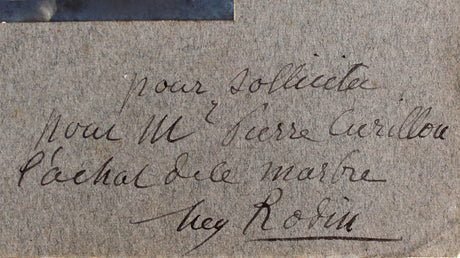 pour solliciter
pour Mr Pierre Curillon
l'achat de le marbre
chez Rodin